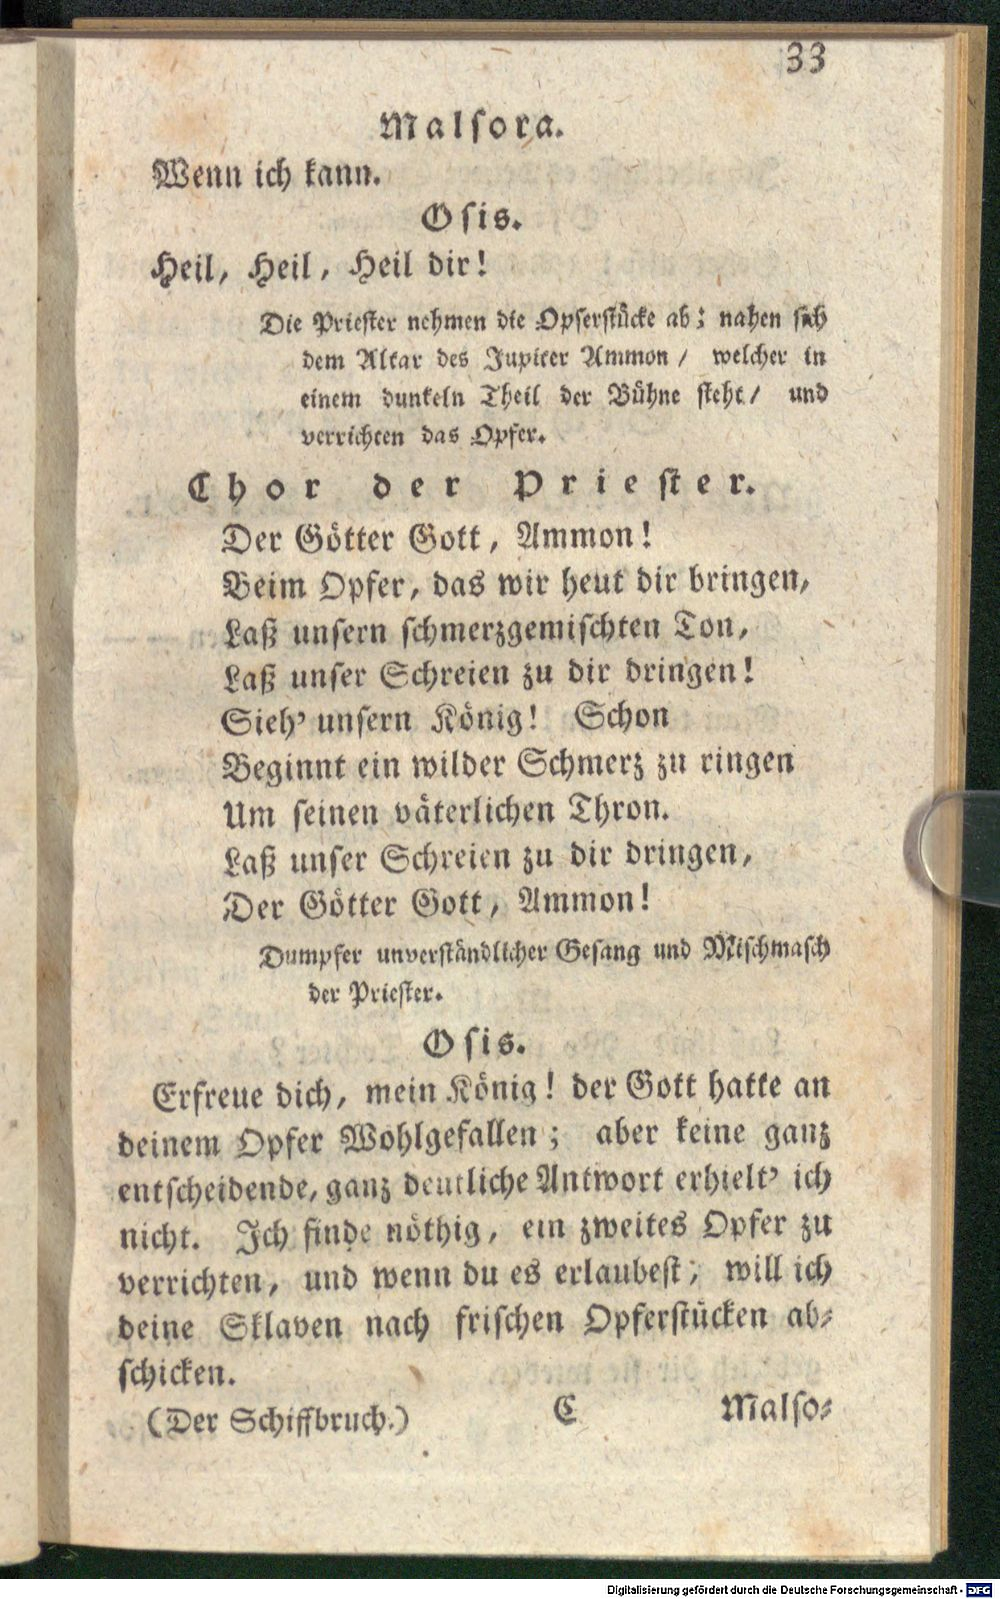 33
Malsora.
Wenn ich kann.
Osis.
Heil, Heil, Heil dir!
Die Priester nehmen die Opferstücke ab; nahen sich
dem Altar des Jupiter Ammon / welcher in
einem dunkeln Theil der Bühne steht / und
verrichten das Opfer.
Chor der Priester.
Der Götter Gott, Ammon!
Beim Opfer, das wir heut dir bringen,
Laß unsern schmerzgemischten Ton,
Laß unser Schreien zu dir dringen!
Sieh' unsern König! Schon
Beginnt ein wilder Schmerz zu ringen
Um seinen väterlichen Thron.
Laß unser Schreien zu dir dringen,
Der Götter Gott, Ammon!
Dumpfer unverständlicher Gesang und Mischmasch
der Priester.
Osis.
Erfreue dich, mein König! der Gott hatte an
deinem Opfer Wohlgefallen; aber keine ganz
entscheidende, ganz deutliche Antwort erhielt' ich
nicht. Ich finde nöthig, ein zweites Opfer zu
verrichten, und wenn du es erlaubest, will ich
deine Sklaven nach frischen Opferstücken ab-
schicken.
(Der Schiffbruch.) C Malso-
Digitalisierung gefördert durch die Deutsche Forschungsgemeinschaft - DFG